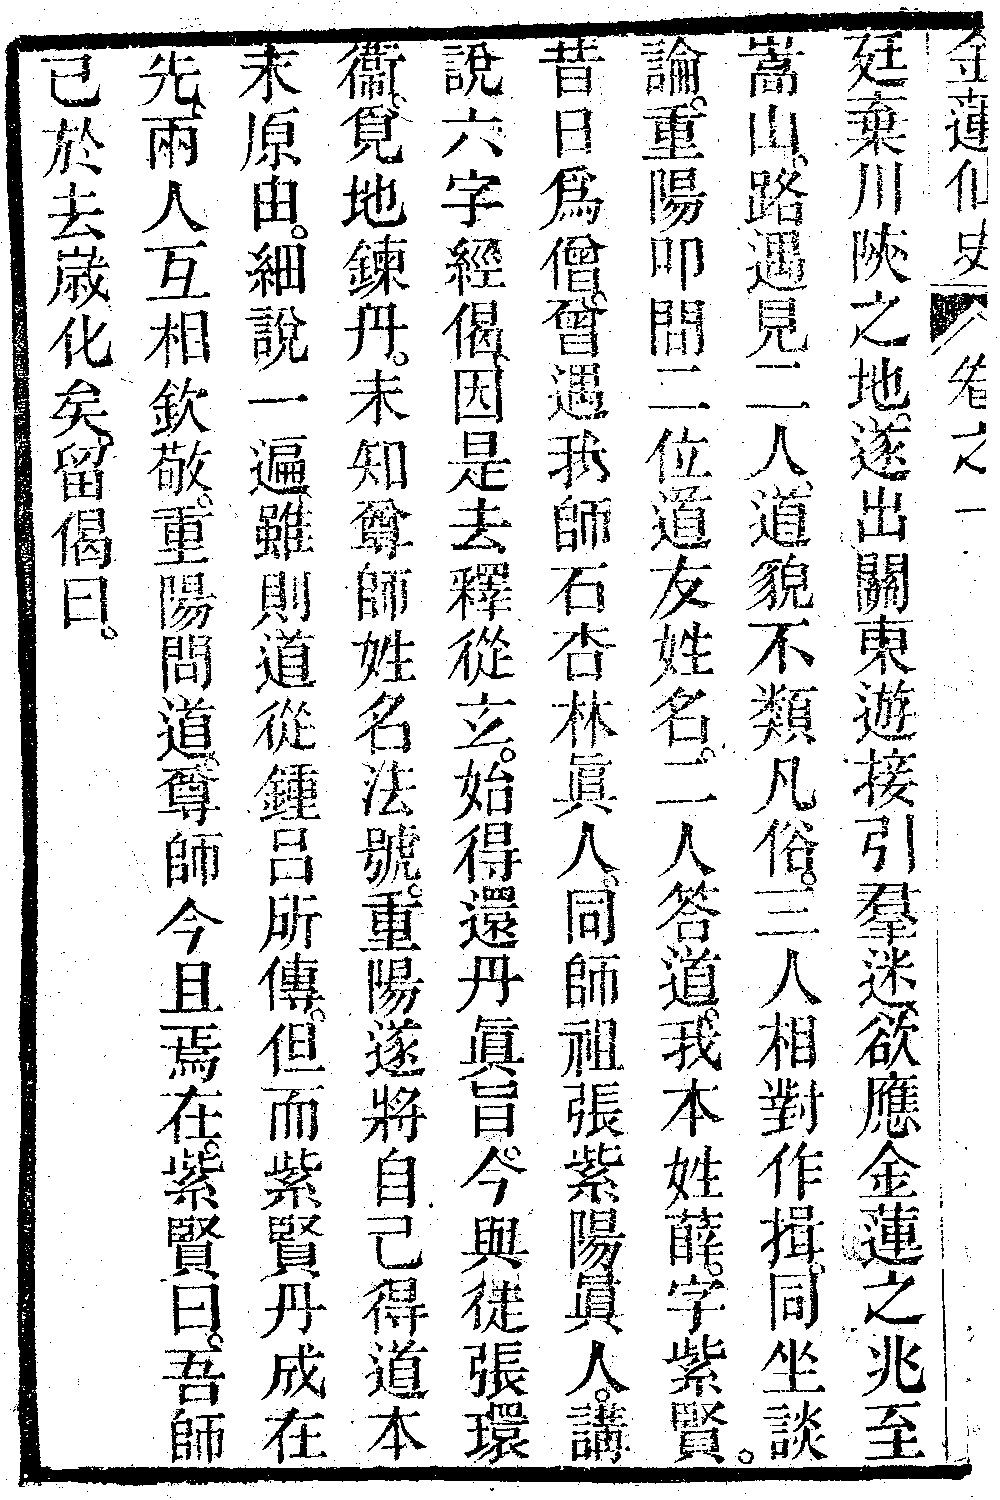 金蓮仙史 卷之一
廷棄川陝之地。遂出關東遊接引羣迷、欲應金蓮之兆至
嵩山。路遇見二人、道貌不類凡俗。三人相對作揖。同坐談
論。重陽叩問二位道友姓名。二人答道。我本姓薛。字紫賢。
昔日爲僧。曾遇我師石杏林眞人。同師祖張紫陽眞人。講
說六字經偈、因是去釋從玄。始得還丹眞旨。今與徒張環
衞。覓地鍊丹。未知尊師姓名法號。重陽遂將自己得道本
末原由。細說一遍、雖則道從鍾呂所傳。但而紫賢丹成在
先、兩人互相欽敬。重陽問道。尊師今且焉在。紫賢曰。吾師
已於去歲化矣。留偈曰。